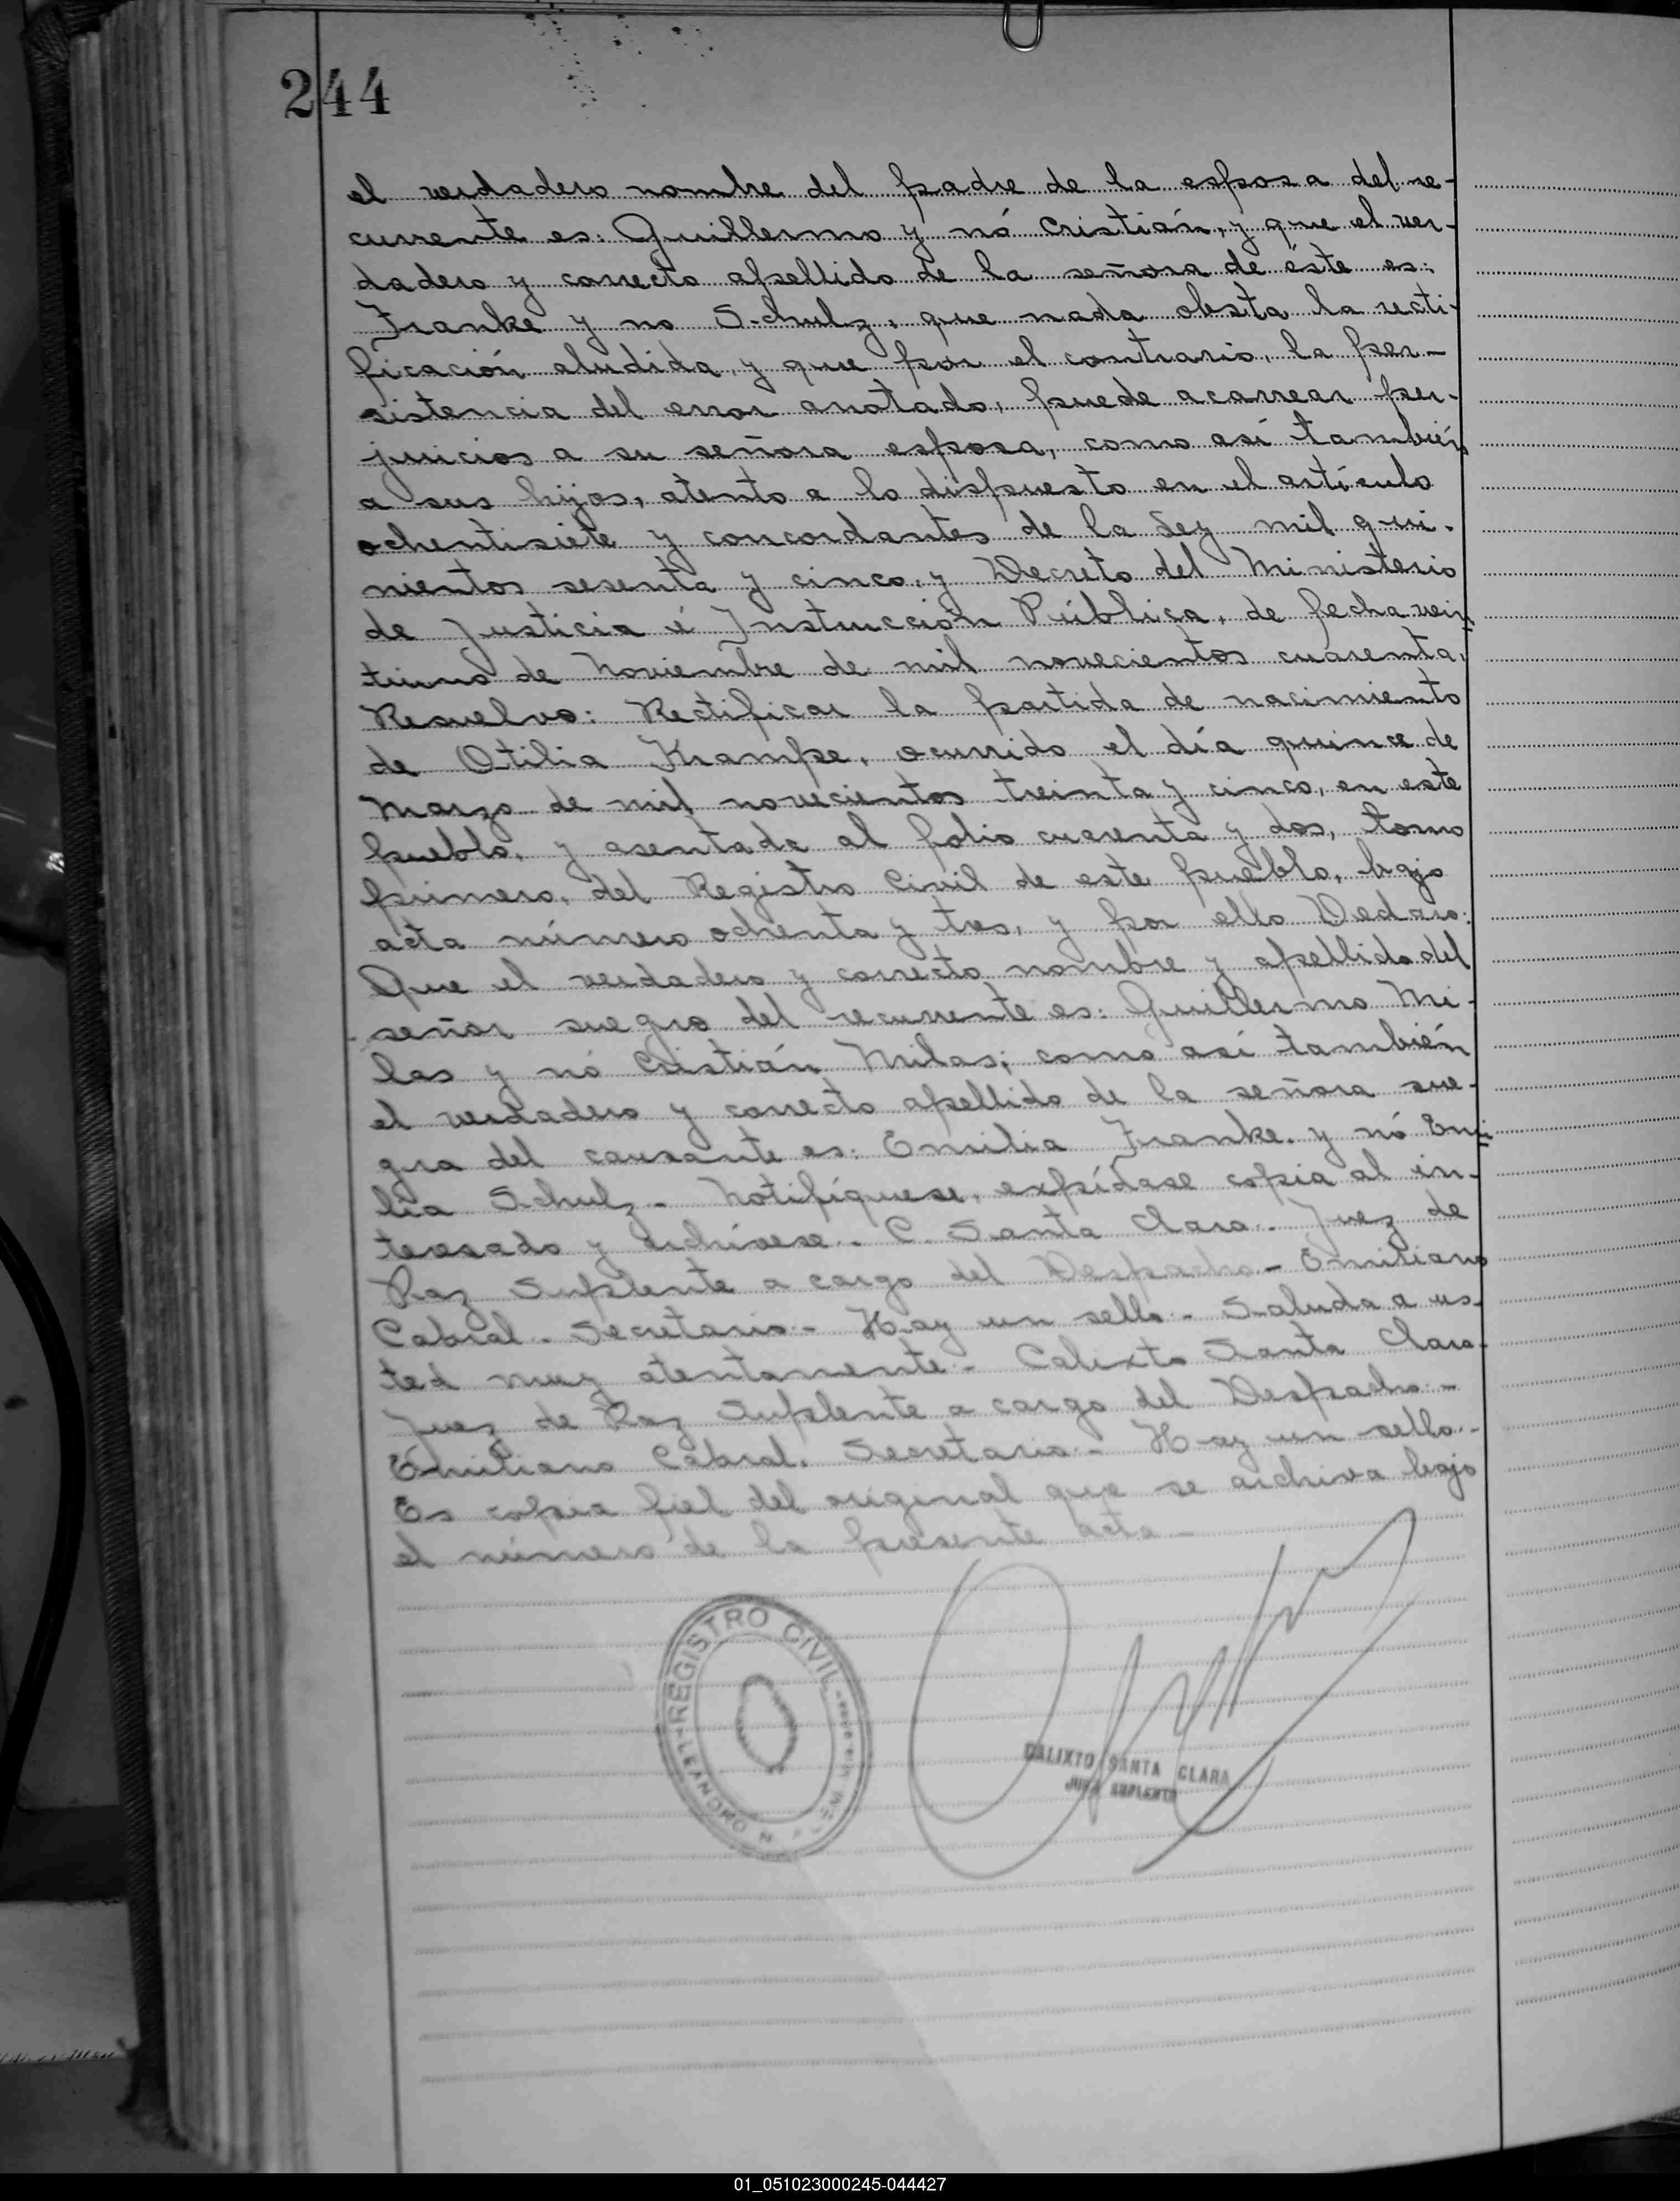 244
el verdadero nombre del padre de la esposa del re-
currente es: Guillermo y nó Cristián, y que el ver-
dadero y correcto apellido de la señora de éste es:
Franke y no Schulz, que nada obsta la recti-
ficación aludida, y que por el contrario, la per-
sistencia del error anotado, puede acarrear per-
juicios a su señora esposa, como así también
a sus hijos, atento a lo dispuesto en el artículo
ochentisiete y concordantes de la Ley mil qui-
nientos sesenta y cinco, y Decreto del Ministerio
de Justicia é Instrucción Pública, de fecha vein
tiuno de Noviembre de mil novecientos cuarenta,
Resuelvo: Rectificar la partida de nacimiento
de Otilia Krampe, ocurrido el día quince de
Marzo de mil novecientos treinta y cinco, en este
pueblo, y asentada al folio cuarenta y dos, tomo
primero, del Registro Civil de este pueblo, bajo
acta número ochenta y tres, y por ello Declaro:
Que el verdadero y correcto nombre y apellido del
señor suegro del recurrente es: Guillermo Mi-
las y nó Cristián Milas; como así también
el verdadero y correcto apellido de la señora sue-
gra del causante es: Emilia Franke. y nó Emi
lia Schulz - Notifíquese, expídase copia al in-
teresado y archívese - C. Santa Clara - Juez de
Paz Suplente a cargo del Despacho - Emiliano
Cabral - Secretario - Hay un sello - Saluda a us-
ted muy atentamente - Calixto Santa Clara -
Juez de Paz Suplente a cargo del Despacho -
Emiliano Cabral. Secretario - Hay un sello -
Es copia fiel del original que se archiva bajo
el número de la presente acta -
REGISTRO CIVIL
LEANDRO N.
CALIXTO SANTA CLARA
JUEZ SUPLENTE
01_051023000245-044427